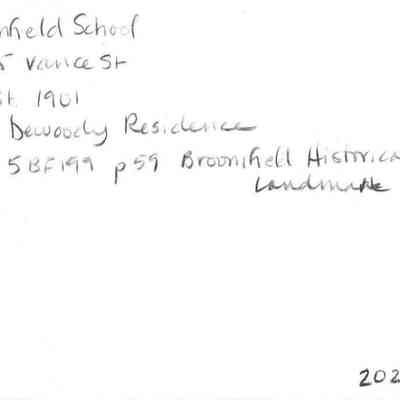 nfield School
5 Vance St
st. 1901
Dewoody Residence
5BF199 p59 Broomfield Historica
Landmark
202